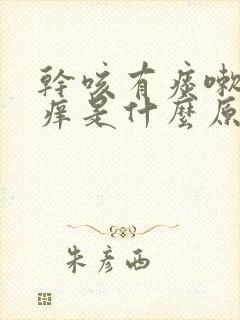 幹咳有痰嗽
痒是什麼原
朱彦西